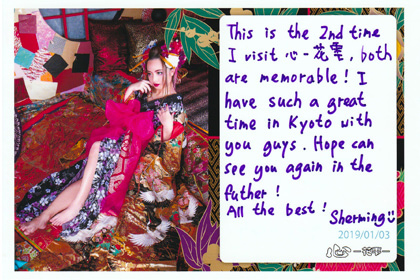 This is the 2nd time
I visit 心-花雫, both
are memorable! I
have such a great
time in Kyoto with
you guys. Hope can
see you again in the
futher!
All the best!
Sherming
2019/01/03
心-花雫-